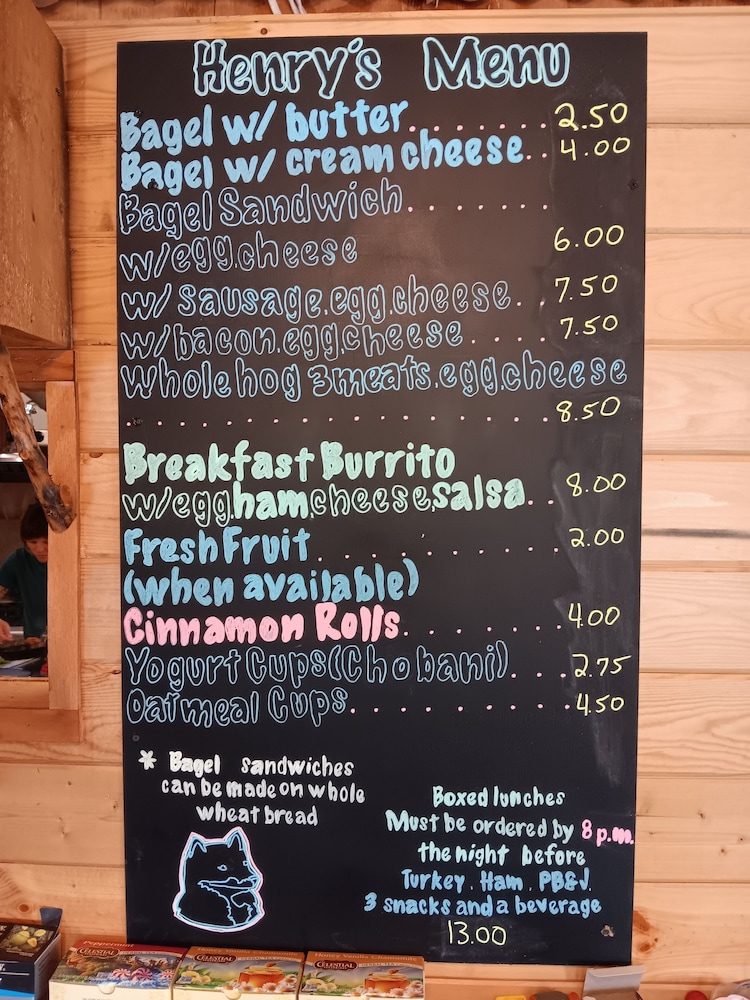 Henry's Menu
Bagel w/ butter. . . . . . . 2.50
Bagel w/ cream cheese. . 4.00
Bagel Sandwich. . . . . . .
w/egg.cheese 6.00
w/ sausage.egg.cheese. . 7.50
w/bacon.egg.cheese. . . . . 7.50
Whole hog 3meats.egg.cheese
. . . . . . . . . . . . . . . . 8.50
Breakfast Burrito
w/egg.ham.cheese.salsa. . 8.00
Fresh Fruit. . . . . . . . . . 2.00
(when available)
Cinnamon Rolls. . . . . . . 4.00
Yogurt Cups(Chobani). . . 2.75
Oatmeal Cups. . . . . . . . . . 4.50
* Bagel sandwiches
can be made on whole
wheat bread
Boxed lunches
Must be ordered by 8 p.m.
the night before
Turkey, Ham, PB&J.
3 snacks and a beverage
13.00
Peppermint
CELESTIAL
CELESTIAL
Honey Vanilla Chamomile
CELESTIAL